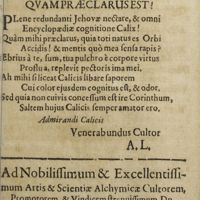 QVAM PRÆCLARUS EST!
PLene redundanti Jehovæ nectare, & omni
Encyclopædiæ cognitione Calix!
Quàm mihi præclarus, quia toti natus es Orbi
Accidis! & mentis quò mea sensa rapis?
Ebrius à te, sum, tua pulchro è corpore virtus
Prosiliit, replevit pectoris ima mei.
Ah mihi si liceat Calicis libare saporem
Cui color ejusdem cognitus est, & odor.
Sed quia non cuivis concessum est ire Corinthum,
Saltem hujus Calicis semper amator ero.
Admirandi Calicis
Venerabundus Cultor
A, L,
Ad Nobilissimum & Excellentissi-
mum Artis & Scientiæ Alchymicæ Cultorem,
Promotorem & Vindicem strenuissimum Dn